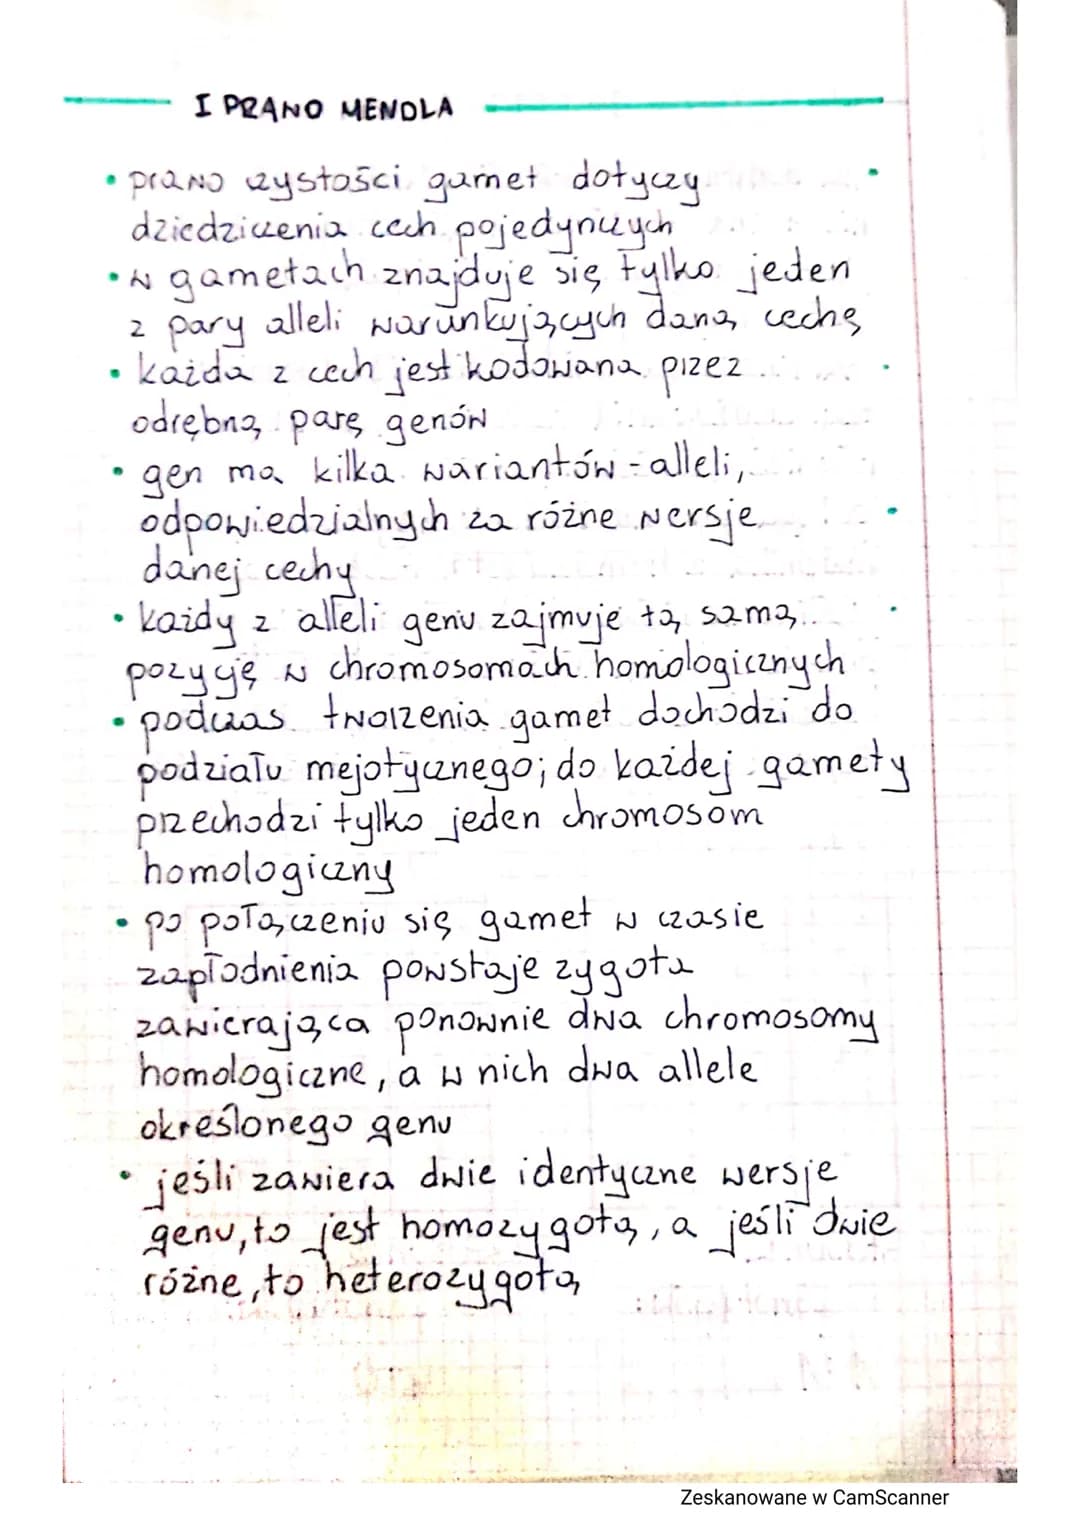 I PRAWO MENDLA
• prawo czystości gamet dotyczy
dziedziczenia cech pojedynczych
• w gametach znajduje się tylko jeden
z pary alleli warunkujących daną cechę
• każda z cech jest kodowana przez
odrębną parę genów
• gen ma kilka wariantów - alleli,
odpowiedzialnych za różne wersje
danej cechy
• każdy z alleli genu zajmuje tą samą
pozycję w chromosomach homologicznych
• podczas tworzenia gamet dochodzi do
podziału mejotycznego; do każdej gamety
przechodzi tylko jeden chromosom
homologiczny
• po połączeniu się gamet w czasie
zapłodnienia powstaje zygota
zawierająca ponownie dwa chromosomy
homologiczne, a w nich dwa allele
określonego genu
• jeśli zawiera dwie identyczne wersje
genu, to jest homozygotą, a jeśli dwie
różne, to heterozygotą
Zeskanowane w CamScanner